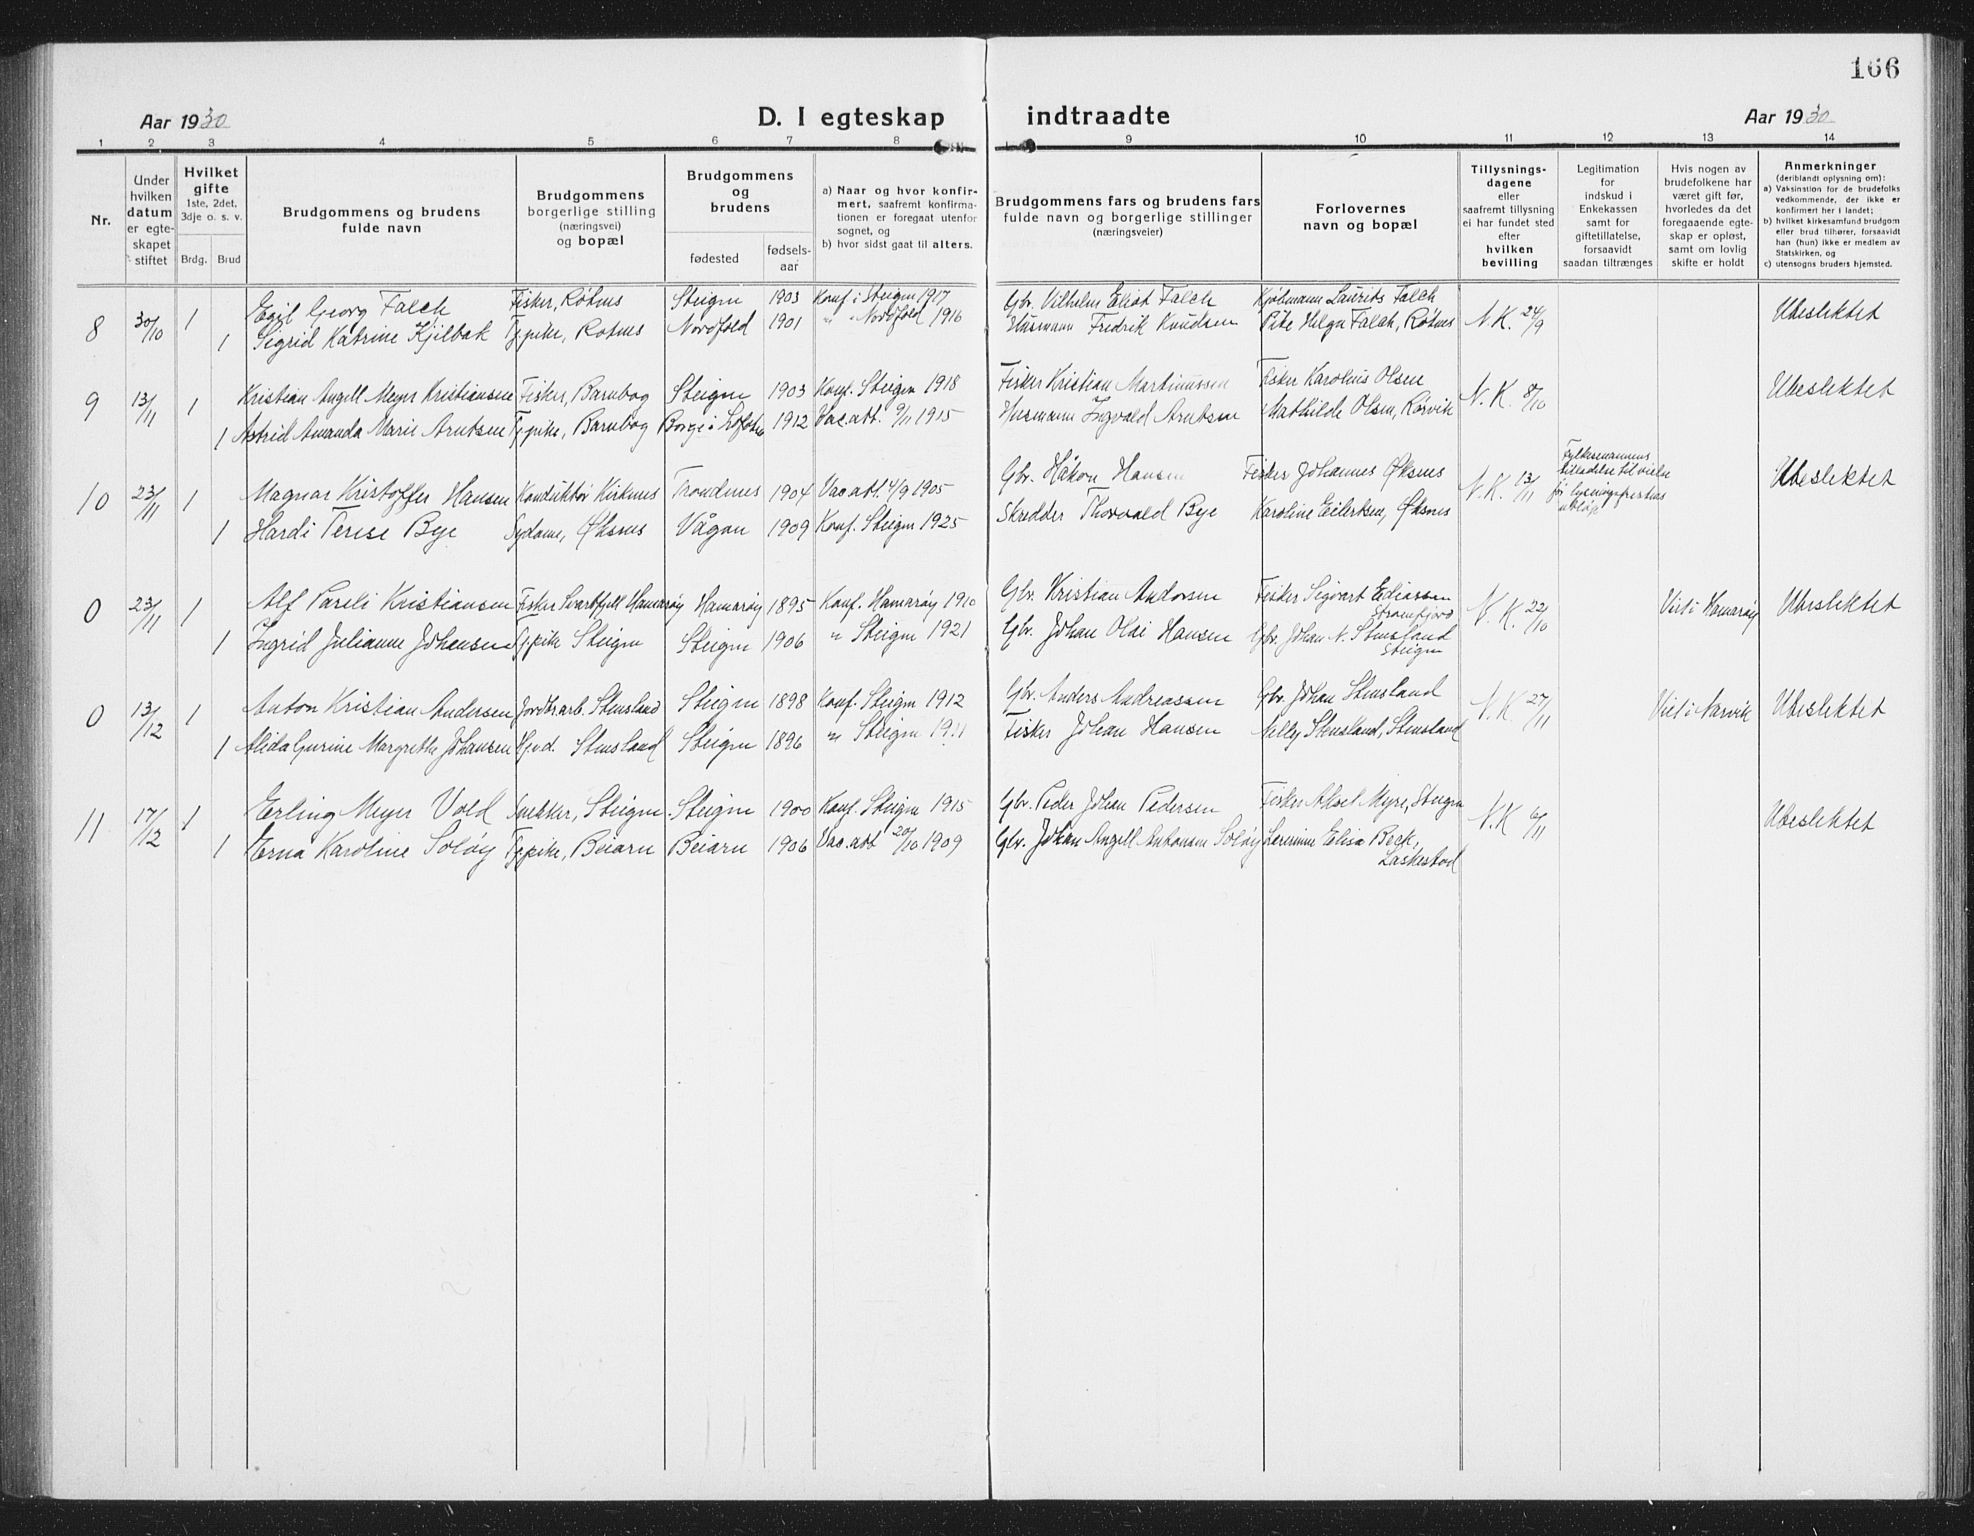 166
Aar 1930
D. I egteskap indtraadte
Aar 1930
1 2 3 4 5 6 7 8 9 10 11 12 13 14
Nr.
Under hvilken datum er egteskapet stiftet
Hvilket gifte
1ste, 2det, 3dje o. s. v.
Brdg. Brud
Brudgommens og brudens fulde navn
Brudgommens borgerlige stilling (næringsvei) og bopæl
Brudgommens og brudens
fødested
fødselsaar
a) Naar og hvor konfirmert, saafremt konfirmationen er foregaat utenfor sognet, og
b) hvor sidst gaat til alters.
Brudgommens fars og brudens fars fulde navn og borgerlige stillinger (næringsveier)
Forlovernes navn og bopæl
Tillysningsdagene eller saafremt tillysning ei har fundet sted efter hvilken bevilling
Legitimation for indskud i Enkekassen samt for giftetillatelse, forsaavidt saadan tiltrænges
Hvis nogen av brudefolkene har været gift før, hvorledes da det foregaaende egteskap er opløst, samt om lovlig skifte er holdt
Anmerkninger
(deriblandt oplysning om):
a) Vaksination for de brudefolks vedkommende, der ikke er konfirmert her i landet;
b) hvilket kirkesamfund brudgom eller brud tilhører, forsaavidt han (hun) ikke er medlem av Statskirken, og
c) utensogns bruders hjemsted.
8 30/10 1 Egil Georg Falch Fisker, Røtnes Steigen 1903 Konf. i Steigen 1917 Gbr. Vilhelm Eliot Falch Kjøbmann Laurits Falch N.K. 24/9 Ubeslektet
1 Sigrid Katrine Kjilbak Tj.pike, Rotnes Nordfold 1901 " " Nordfold 1916 Husmann Fredrik Knudsen Pike Helga Falch, Røtnes
9 13/11 1 Kristian Angell Meyer Kristiansen Fisker, Barnbog Steigen 1903 Konf. Steigen 1918 Fisker Kristian Martinussen Fisker Karolius Olsen N.K. 8/10 Ubeslektet
1 Astrid Amanda Marie Arntsen Tj.pike, Barnbog Borge i Lofoten 1912 Vac.att. 9/11 1915 Husmann Ingvald Arntsen Mathilde Olsen, Rørvik
10 23/11 1 Magnar Kristoffer Hansen Konduktør Kirkenes Trondenes 1904 Vac.att. 4/9 1905 Gbr. Håkon Hansen Fisker Johannes Øksnes N.K. 13/11 Fylkesmannens tilladelse til vielse før lysningsfristens utløp Ubeslektet
1 Hardi Terese Bye Sydame, Øksnes Vågan 1909 Konf. Steigen 1925 Skredder Thorvald Bye Karoline Eilertsen, Øksnes
0 23/11 1 Alf Pareli Kristiansen Fisker Svartfjell Hamarøy Hamarøy 1895 Konf. Hamarøy 1910 Gbr. Kristian Andersen Fisker Sigvart Ediassen N.K. 22/10 Viet i Hamarøy Ubeslektet
1 Ingrid Julianne Johansen Tj.pike Steigen Steigen 1906 " Steigen 1921 Gbr. Johan Olai Hansen Gbr. Johan N. Stensland Steigen
0 13/12 1 Anton Kristian Andersen Jordbr.arb. Stensland Steigen 1898 Konf. Steigen 1912 Gbr. Anders Andreassen Gbr. Johan Stensland N.K 27/11 Viet i Narvik Ubeslektet
1 Alida Gurine Margrethe Johansen Stensland Steigen 1896 " Steigen 1911 Fisker Johan Hansen Nelly Stensland, Stensland
11 17/12 1 Erling Meyer Vold Snekker, Steigen Steigen 1900 Konf. Steigen 1915 Gbr. Peder Johan Pedersen Fisker Aksel Myre, Steigen N.K 6/11 Ubeslektet
1 Erna Karoline Soløy Tj.pike, Beiarn Beiarn 1906 Vac.att 20/10 1909 Gbr. Johan Angell Antonsen Soløy Lærerinne Elisa Beck, Laskestad